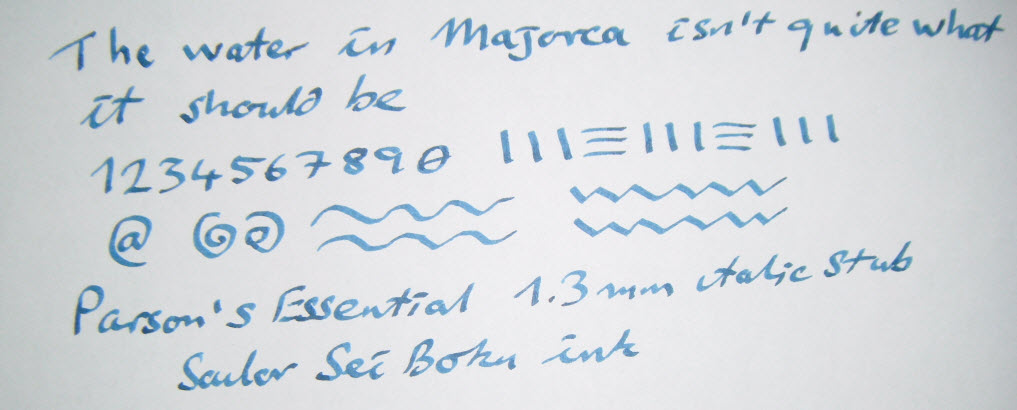 The water in Majorca isn't quite what
it should be
1234567890
@
Parson's Essential 1.3mm italic stub
Sailor Sei Boku ink